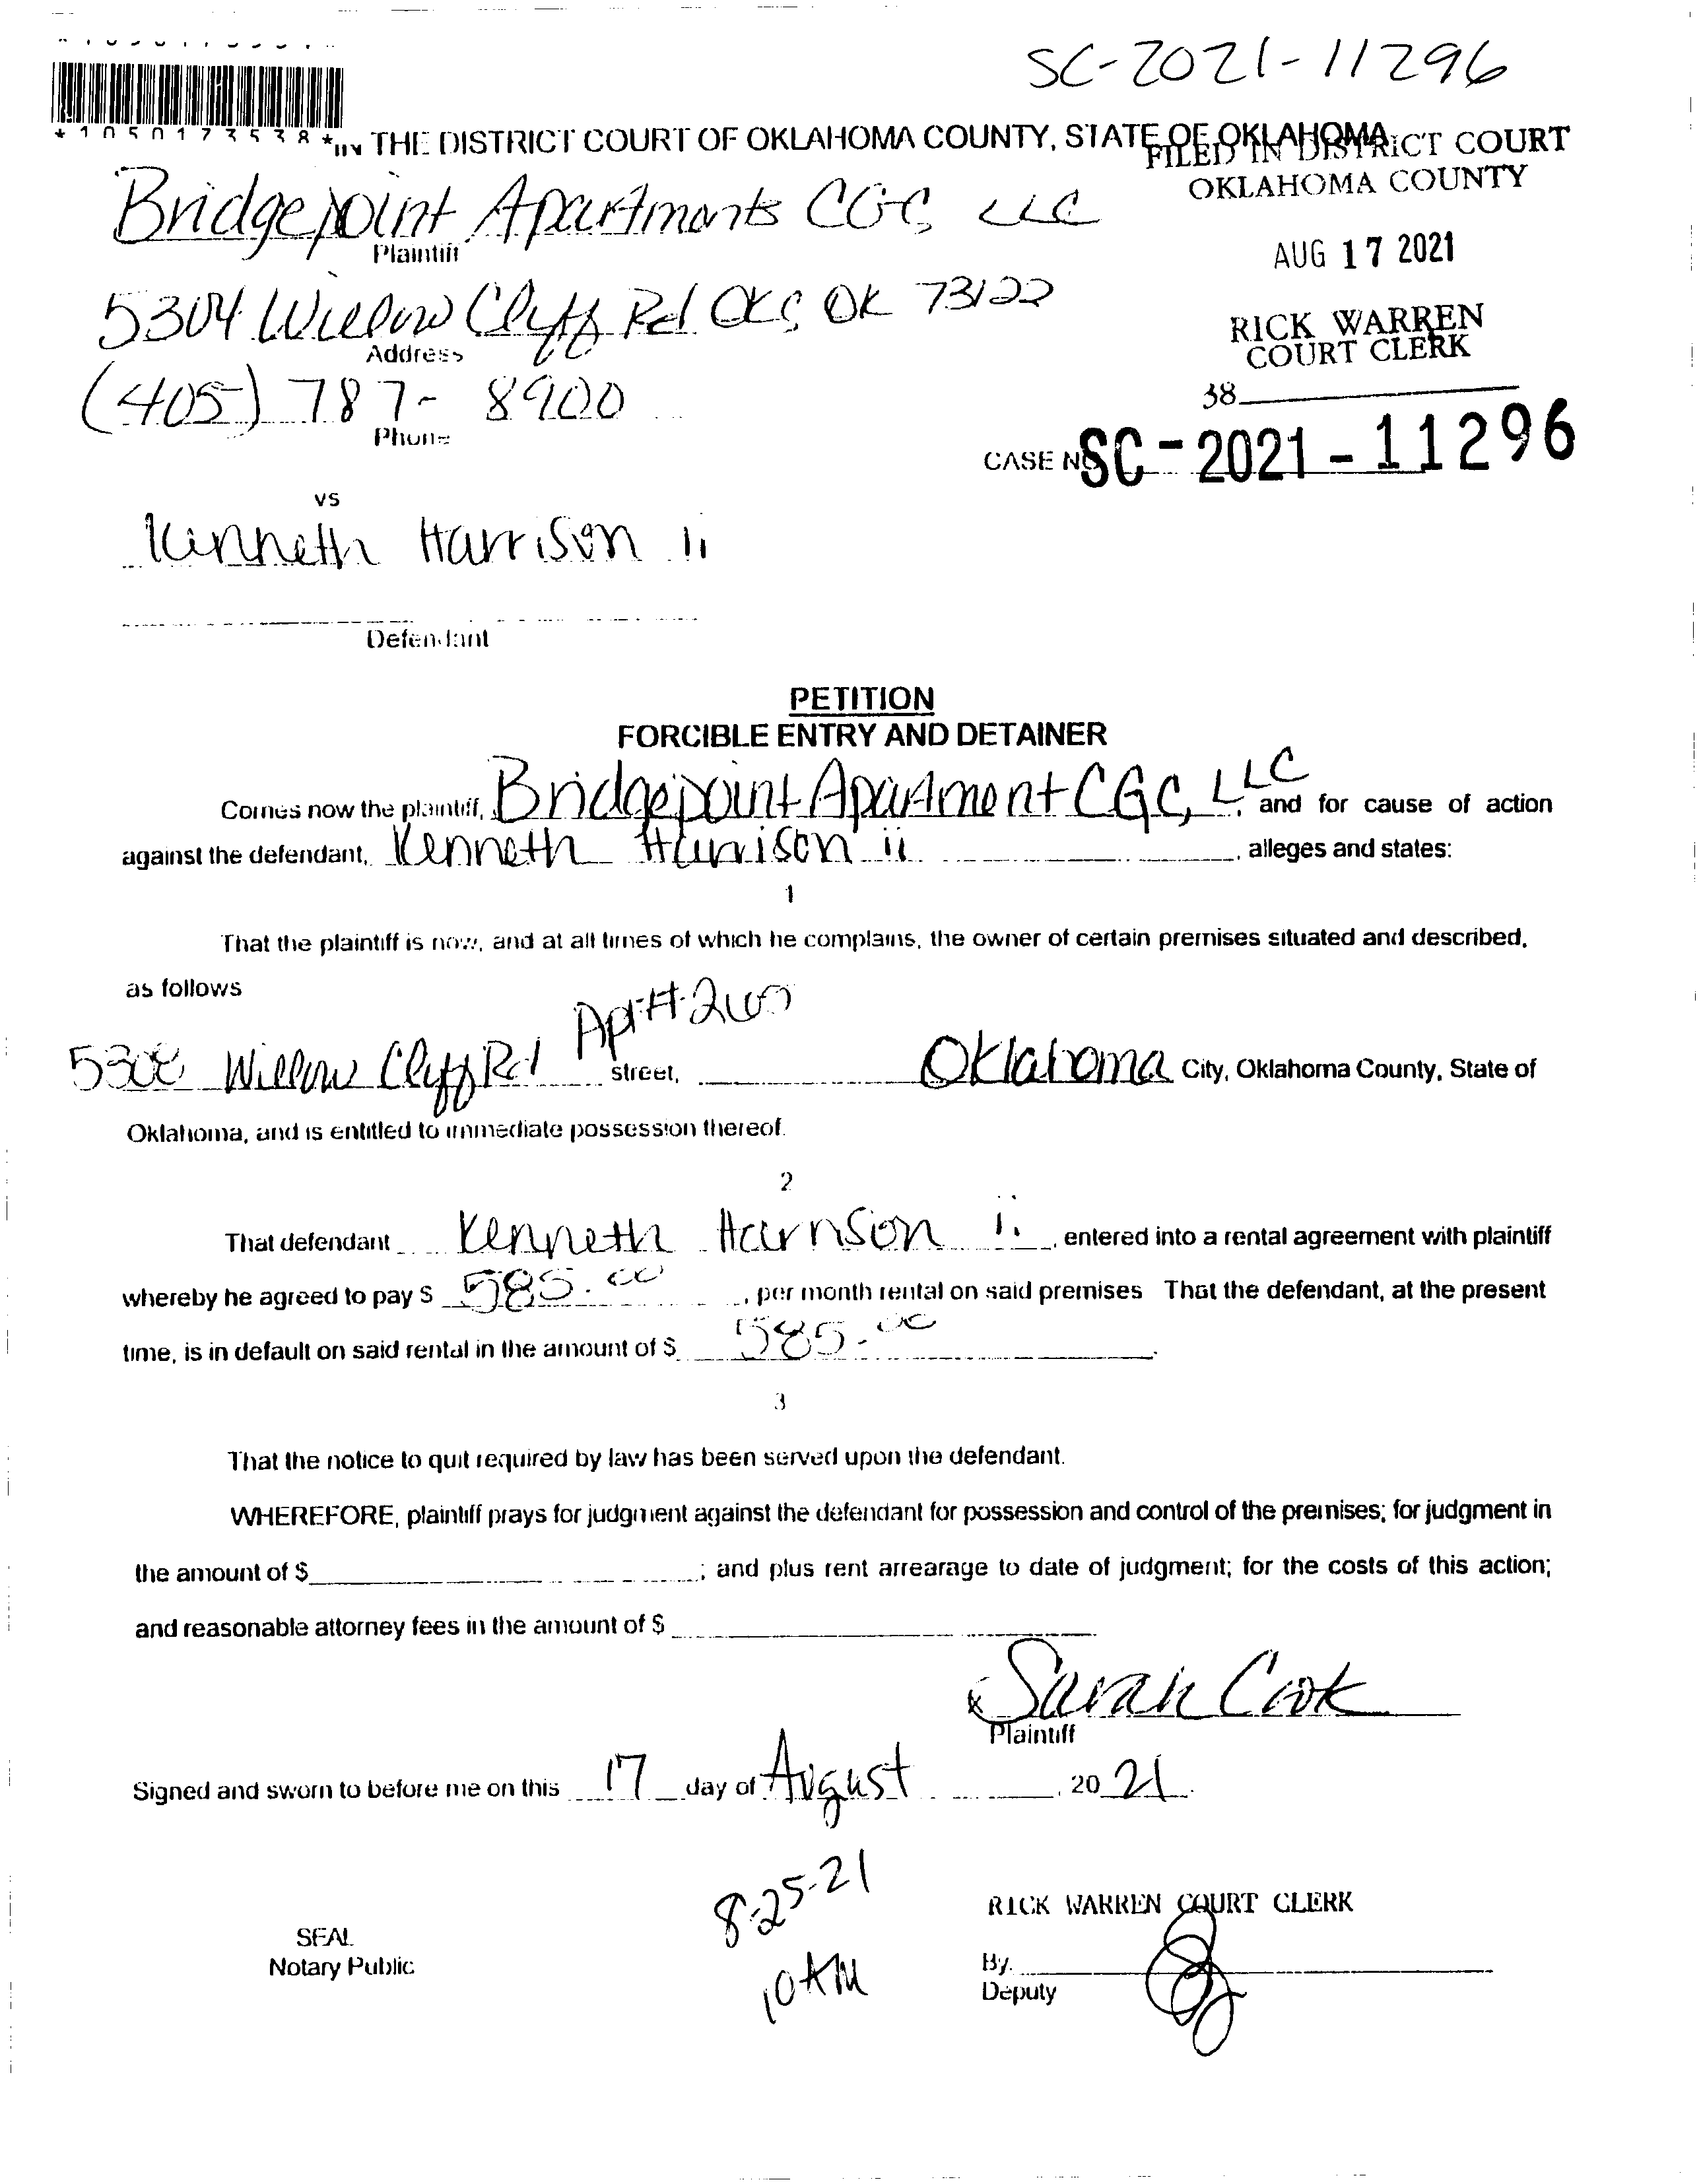 SC-2021-11296
*1050173538*
IN THE DISTRICT COURT OF OKLAHOMA COUNTY, STATE OF OKLAHOMA
FILED IN DISTRICT COURT
OKLAHOMA COUNTY
Bridgepoint Apartments CGC, LLC
Plaintiff
AUG 17 2021
5304 Willow Cliff Rd OKC, OK 73122
Address
RICK WARREN
COURT CLERK
(405) 787-8900
Phone
38
CASE NO SC-2021-11296
vs
Kenneth Harrison ii
Defendant
PETITION
FORCIBLE ENTRY AND DETAINER
Comes now the plaintiff, Bridgepoint Apartment CGC, LLC, and for cause of action
against the defendant, Kenneth Harrison ii, alleges and states:
1
That the plaintiff is now, and at all times of which he complains, the owner of certain premises situated and described,
as follows
Apt#
Willow Cliff Rd street, Oklahoma City, Oklahoma County, State of
Oklahoma, and is entitled to immediate possession thereof.
2
That defendant Kenneth Harrison ii, entered into a rental agreement with plaintiff
whereby he agreed to pay $ 585.00, per month rental on said premises That the defendant, at the present
time, is in default on said rental in the amount of $ 585.00.
3
That the notice to quit required by law has been served upon the defendant.
WHEREFORE, plaintiff prays for judgment against the defendant for possession and control of the premises; for judgment in
the amount of $ ; and plus rent arrearage to date of judgment; for the costs of this action;
and reasonable attorney fees in the amount of $
x Sarah Cook
Plaintiff
Signed and sworn to before me on this 17 day of August, 2021.
8-25-21
10AM
SEAL
Notary Public
RICK WARREN COURT CLERK
By.
Deputy